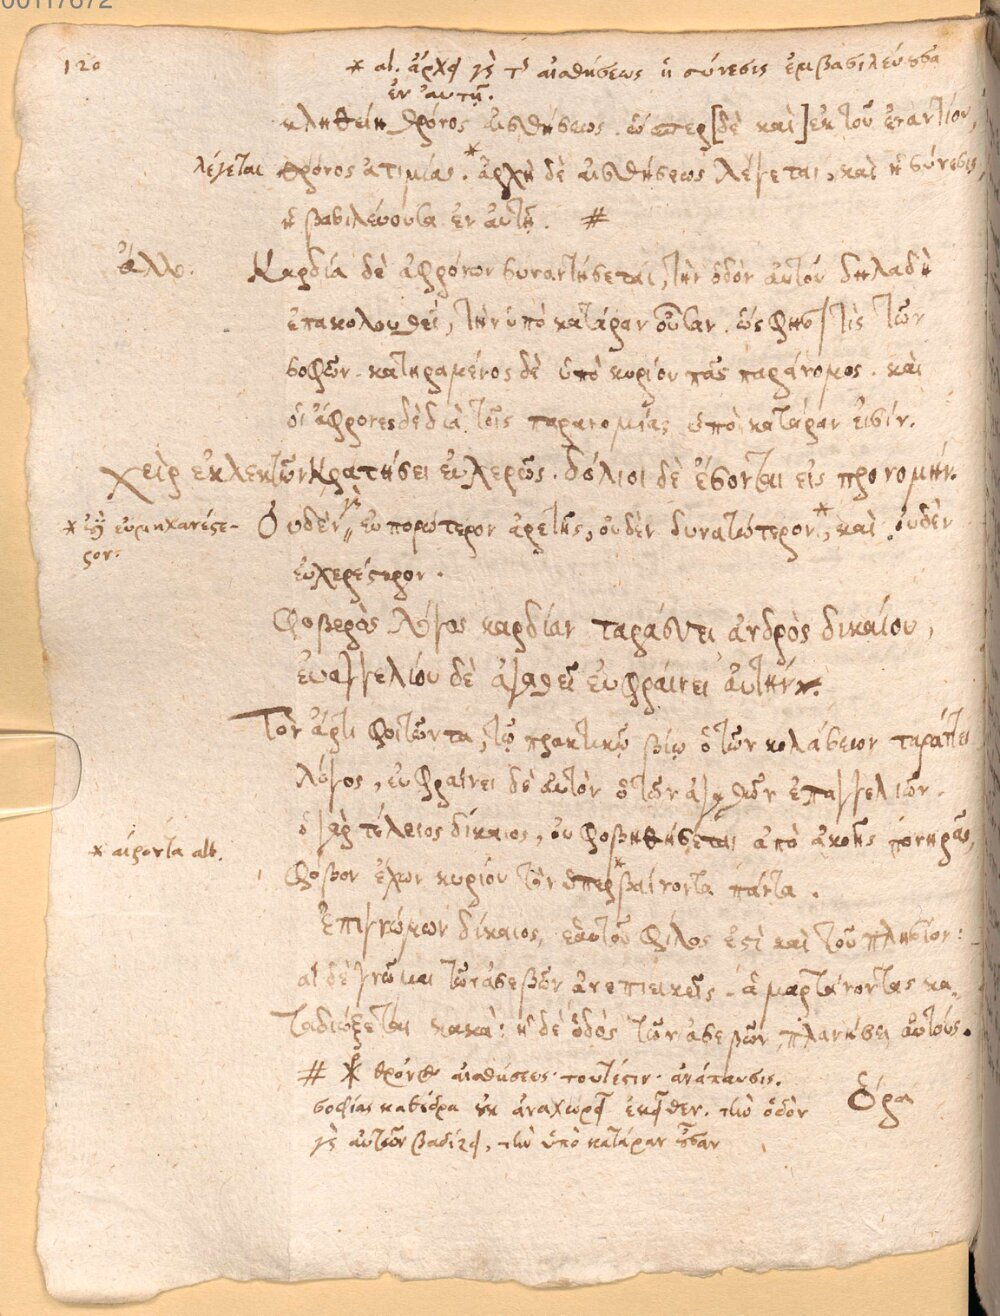 00117672
120
* al. ἄρχει γὰρ τῆς αἰσθήσεως ἡ σύνεσις ἐμβασιλεύουσα
ἐν αὐτῇ.
κληθείη θρόνος αἰσθήσεως. ὥσπερ [δὲ καὶ] ἐκ τοῦ ἐναντίου,
λέγεται θρόνος ἀτιμίας.* ἀρχὴ δὲ αἰσθήσεως λέγεται, καὶ ἡ σύνεσις,
ἡ βασιλεύουσα ἐν αὐτῇ. #
ἄλλο. Καρδία δὲ ἀφρόνων συναντήσεται, τὴν ὁδὸν αὐτῶν δηλαδὴ
ἐπακολουθεῖ, τὴν ὑπὸ κατάραν οὖσαν. ὥς φησί τις τῶν
σοφῶν. κατηραμένος δὲ ὑπὸ κυρίου πᾶς παράνομος. καὶ
οἱ ἄφρονες δὲ διὰ τῆς παρανομίας ὑπὸ κατάραν εἰσίν.
Χεὶρ ἐκλεκτῶν κρατήσει εὐχερῶς. δόλιοι δὲ ἔσονται εἰς προνομήν.
* εὐμηχανέστε-
ρον.
Οὐδὲν γὰρ εὐπορώτερον ἀρετῆς, οὐδὲν δυνατώτερον*, καὶ οὐδὲν
εὐχερέστερον.
Φοβερὸς λόγος καρδίαν ταράσσει ἀνδρὸς δικαίου,
εὐαγγελίου δὲ ἀγαθεῖ εὐφραίνει αὐτήν.
Τὸν ἄρτι φοιτῶντα, τῷ πρακτικῷ βίῳ ὁ τῶν κολάσεων ταράττει
λόγος, εὐφραίνει δὲ αὐτὸν ὁ τῶν ἀγαθῶν ἐπαγγελιῶν.
ὁ γὰρ τέλειος δίκαιος, οὐ φοβηθήσεται ἀπὸ ἀκοῆς πονηρᾶς,
* αἴροντα alt.
φόβον ἔχων κυρίου τὸν ὑπερ*βαίνοντα πάντα.
Ἐπιγνώμων δίκαιος, ἑαυτοῦ φίλος ἐστὶ καὶ τοῦ πλησίον:
αἱ δὲ γνῶμαι τῶν ἀσεβῶν ἀνεπιεικεῖς. ἁμαρτάνοντας κα-
ταδιώξεται κακὰ: ἡ δὲ ὁδὸς τῶν ἀσεβῶν, πλανήσει αὐτούς.
# * θρόνος αἰσθήσεως τουτέστιν ἀνάπαυσις.
σοφίας καθέδρα οὐκ ἀναχωρεῖ ἐκεῖθεν. τὴν ὁδὸν
γὰρ αὐτῶν βαδίζει, τὴν ὑπὸ κατάραν οὖσαν
Ὅρα